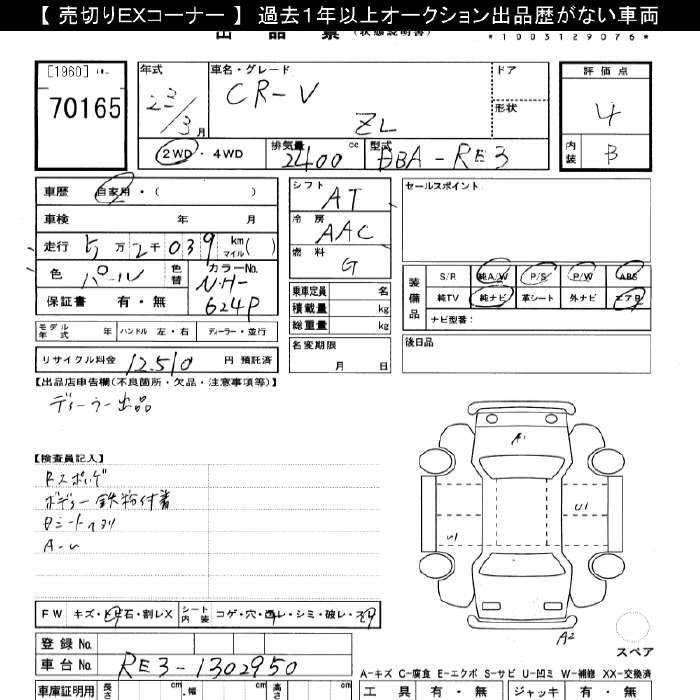 【 売切りEXコーナー 】 過去1年以上オークション出品歴がない車両
出 品 票 (状態説明書)
*1003129076*
[1960]
70165
年式
23/3月
車名・グレード
CR-V
ZL
ドア
形状
評価点
4
内装
B
2WD・4WD
排気量
2400
cc
型式
DBA-RE3
車歴
自家用・( )
車検 年 月
走行 5万2千039 km マイル( )
色
パール
色替
カラーNo.
NH-
624P
保証書 有・無
シフト
AT
冷房
AAC
燃料
G
乗車定員 名
積載量 kg
総重量 kg
名変期限
月 日
セールスポイント
装備品
S/R 純A/W P/S P/W ABS
純TV 純ナビ 革シート 外ナビ エアB
ナビ型番:
後日品
モデル年式 年
ハンドル 左・右
ディーラー・並行
リサイクル料金 12,510 円 預託済
【出品店申告欄(不良箇所・欠品・注意事項等)】
ディーラー出品
【検査員記入】
Rスポイラ
ボディー鉄粉付着
A-U
A1
U1
U1
A2
スペア
FW キズ・トビ石・割レX
シート内装 コゲ・穴・スレ・シミ・破レ・スリ
登録 No.
車台 No. RE3-1302950
A-キズ C-腐食 E-エクボ S-サビ U-凹ミ W-補修 XX-交換済
車庫証明用 長さ cm 幅 cm 高さ cm
工具 有・無 ジャッキ 有・無